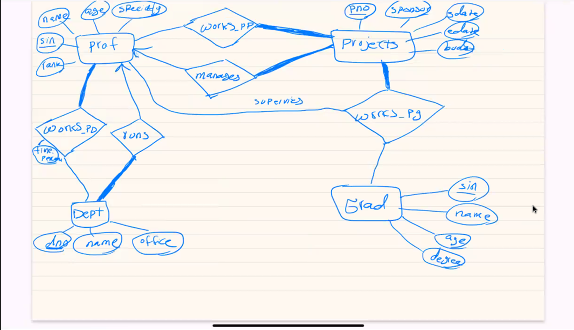 name
age
speciality
sin
rank
Prof
works_PP
manages
pno
sponsor
sdate
edate
budget
Projects
supervises
works_PD
time
runs
works_Pg
Dept
dno
name
office
Grad
sin
name
age
degree